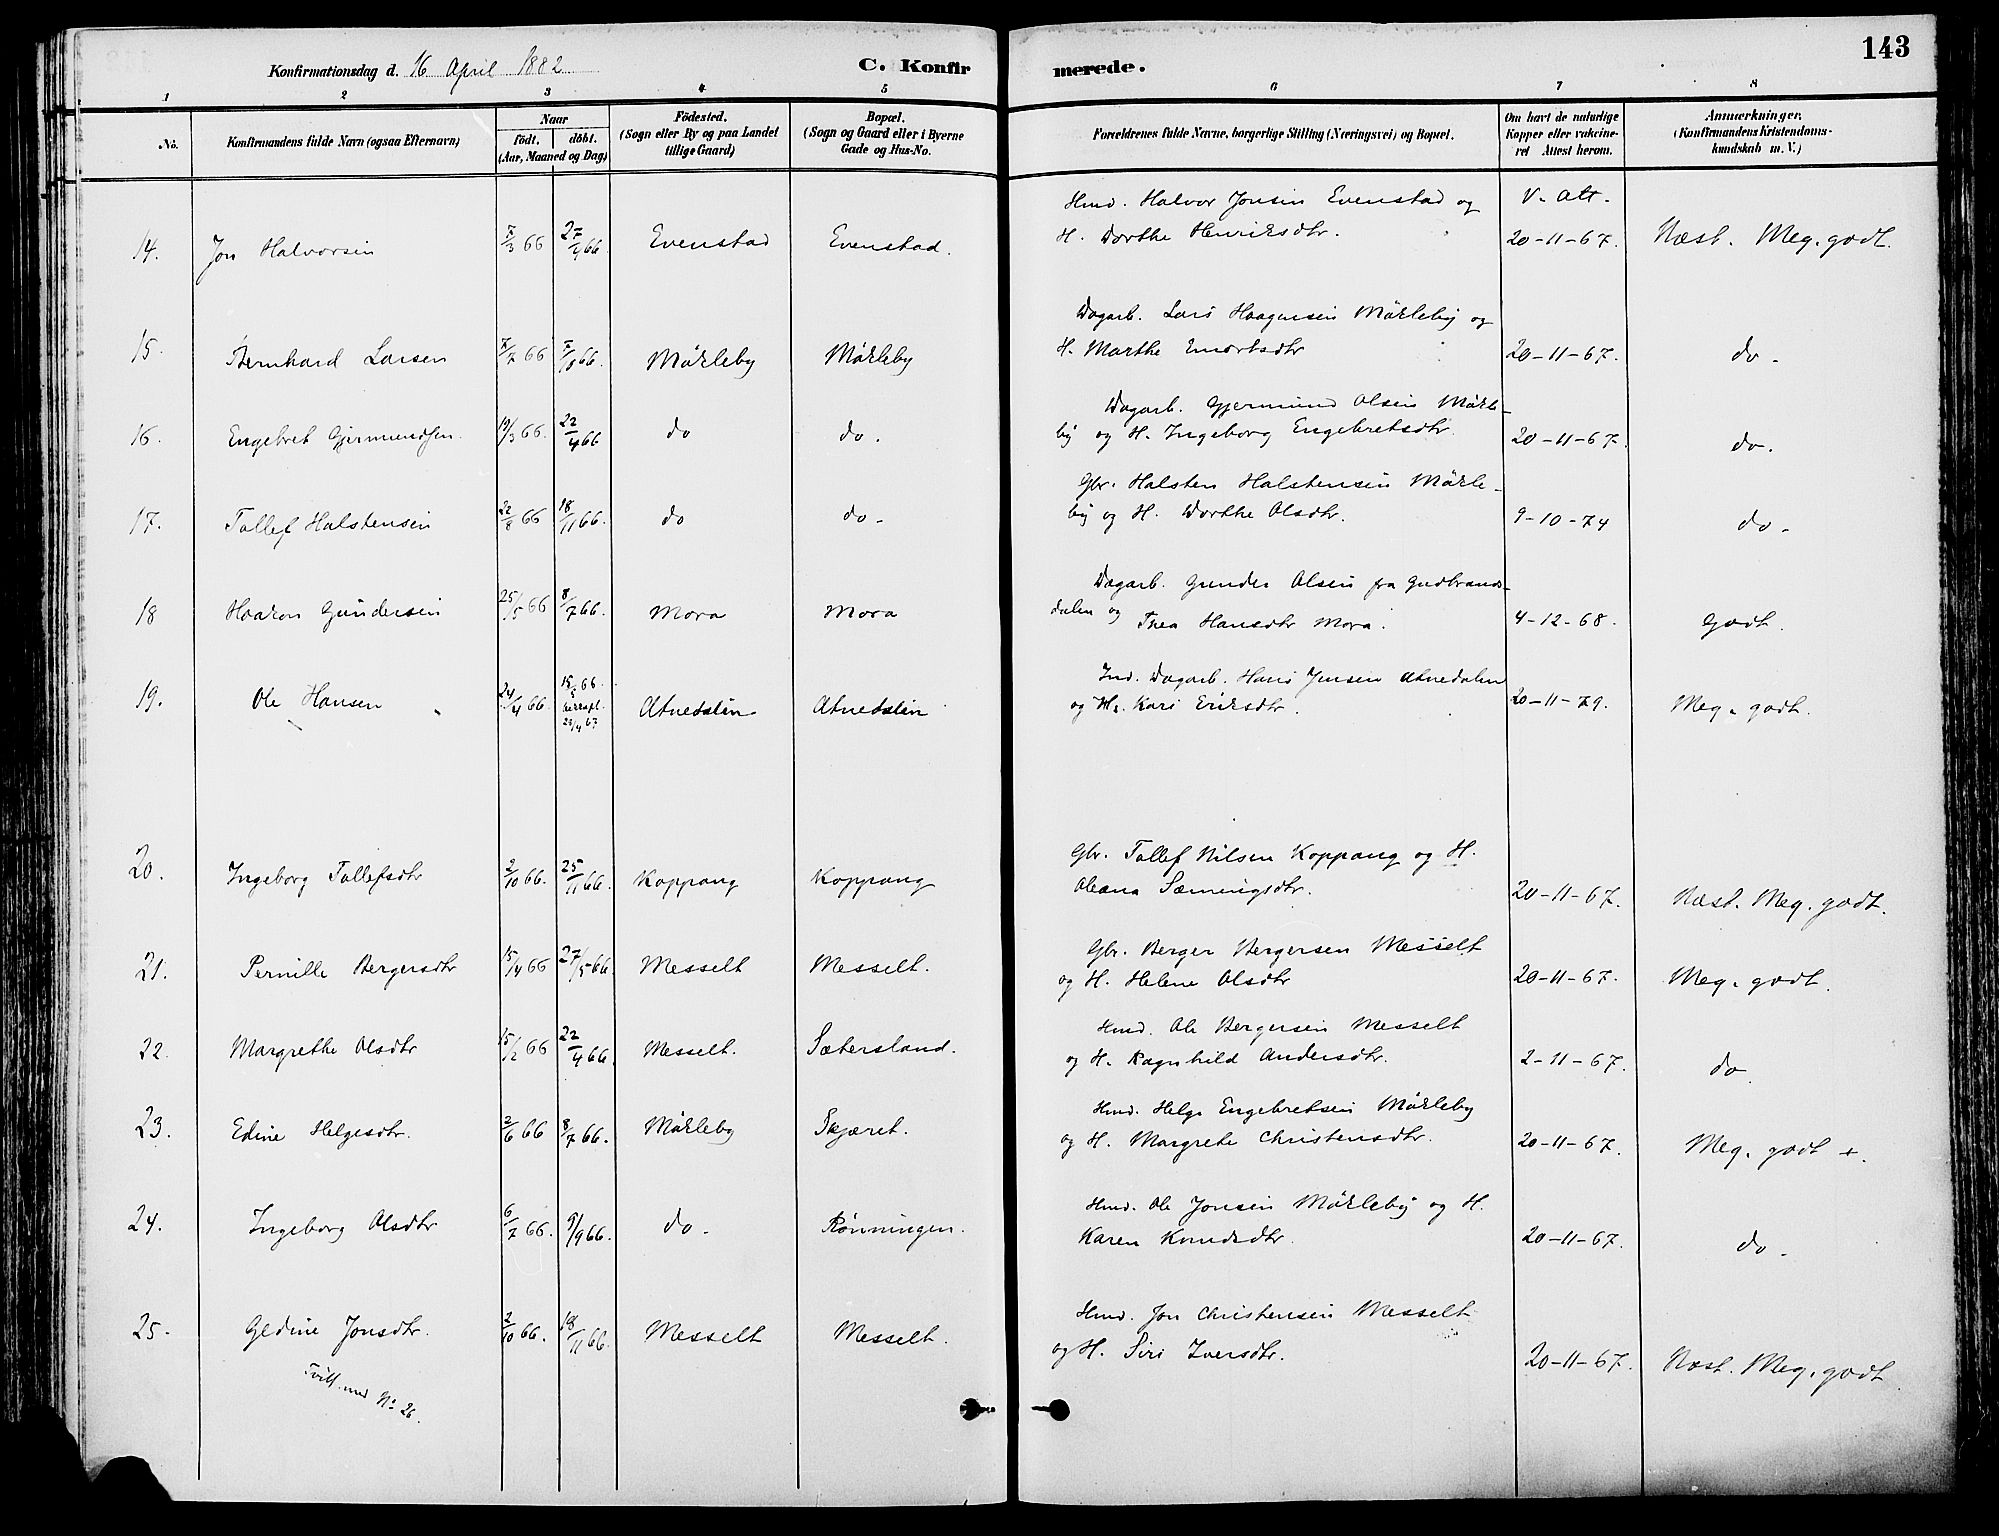 143
Konfirmationsdag d. 16 April 1882 C. Konfirmerede.
1 2 3 4 5 6 7 8
No. Konfirmandens fulde Navn (ogsaa Efternavn) Naar födt. döbt. (Aar, Maaned og Dag) Födested. (Sogn eller By og paa Landet tillige Gaard) Bopæl. (Sogn og Gaard eller i Byerne Gade og Hus-No. Forældrenes fulde Navne, borgerlige Stilling (Næringsvei) og Bopæl. Om havt de naturlige Kopper eller vakcineret Attest herom. Anmærkninger. (Konfirmandens Kristendomskundskab m. V.)
Hmd. Halvor Jonsen Evenstad og V. Att.
14. Jon Halvorsen 7/3 66 27/4 66 Evenstad Evenstad. H. Dorthe Henriksdtr. 20-11-67. Næst. Meg. godt.
Dagarb. Lars Haagensen Mörleby og
15. Bernhard Larsen 7/7 66 7/10 66. Mörleby Mörleby H. Marthe Emertsdtr 20-11-67. do.
Dagarb. Gjermund Olsen Mörle-
16. Engebret Gjermundsen. 19/3 66. 22/4 66 do do. by og H. Ingeborg Engebretsdtr. 20-11-67. do.
Gbr. Halsten Halstensen Mörle-
17. Tollef Halstensen 22/8 66 18/11 66. do do. by og H. Dorthe Olsdtr. 9-10-74 do.
Dagarb. Gunder Olsen fra Gudbrands-
18 Haakon Gundersen 25/5 66 8/7 66. Mora Mora dalen og Thea Hansdtr Mora. 4-12-68. godt.
Ind. Dagarb. Hans Jensen Atnedalen
19. Ole Hansen 24/4 66. 15/5 66. 23/4 67 Atnedalen Atnedalen og H. Kari Eriksdtr. 20-11-79. Meg. godt.
Gbr. Tollef Nilsen Koppang og H.
20. Ingeborg Tollefsdtr 2/10 66. 25/11 66. Koppang Koppang Oleana Sæmingsdtr. 20-11-67. Næst. Meg. godt.
Gbr. Berger Bergersen Messelt
21. Pernille Bergersdtr 15/4 66 27/5 66. Messelt Messelt. og H. Helene Olsdtr 20-11-67. Meg. godt.
Hmd. Ole Bergersen Messelt
22. Margrethe Olsdtr 15/2 66 22/4 66. Messelt. Sætersland. og H. Ragnhild Andersdtr. 2-11-67. do
Hmd. Helge Engebretsen Mörleby
23. Edine Helgesdtr. 2/6 66 8/7 66. Mörleby Skjæret. og H. Margrete Christensdtr. 20-11-67. Meg. godt +.
Hmd. Ole Jonsen Mörleby og H.
24. Ingeborg Olsdtr 6/7 66. 9/9 66. do. Rönningen. Karen Knudsdtr. 20-11-67. do.
Hmd. Jon Christensen Messelt
25. Gedine Jonsdtr. 2/10 66. 18/11 66. Messelt Messelt. og H. Siri Iversdtr. 20-11-67. Næst. Meg. godt
Tvill. med No 26.